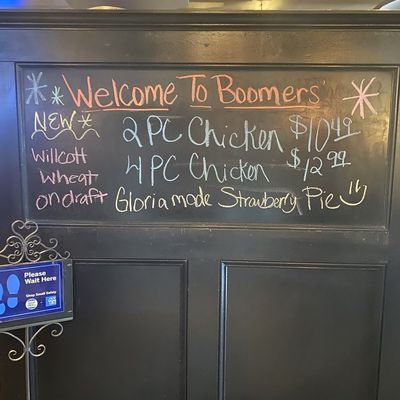 Welcome To Boomers
NEW
2 PC Chicken $10.49
4 PC Chicken $12.99
Willcott
Wheat
on draft
Gloria made Strawberry Pie
Please
Wait Here
Shop Small Safely